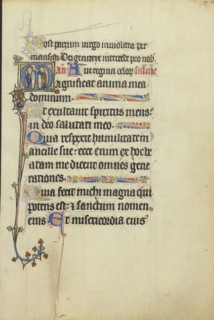 Post partum virgo inviolata per
mansisti Dei genitrix intercede pro nob
Ave regina celor
Magnificat anima mea
dominum.
Et exultavit spiritus meus
in deo salutari meo.
Quia respexit humilitatem
ancille sue: ecce enim ex hoc be
atam me dicent omnes gene
rationes.
Quia fecit michi magna qui
potens est: & sanctum nomen
eius. Et misericordia eius